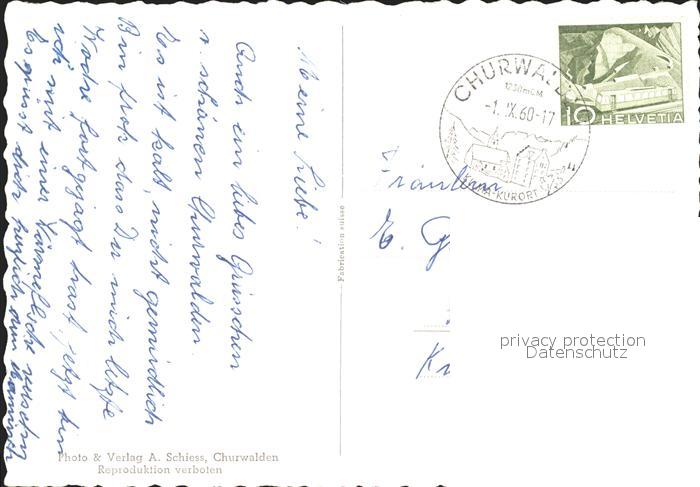 Meine Liebe!
Auch ein liebes Grüsschen
v. schönen Churwalden.
Es ist kalt, nicht gemütlich
Bin froh dass Du mich letzte
Woche fortgejagt hast, jetzt bin
ich mit einer versehen
Es grüsst dich herzlich dein
Photo & Verlag A. Schiess, Churwalden
Reproduktion verboten
Fabrication suisse
CHURWALDEN
1230 m.ü.M.
-1.IX.60-17
KLIMA-KURORT
10 HELVETIA
Fräulein
E. G
Kr
privacy protection
Datenschutz